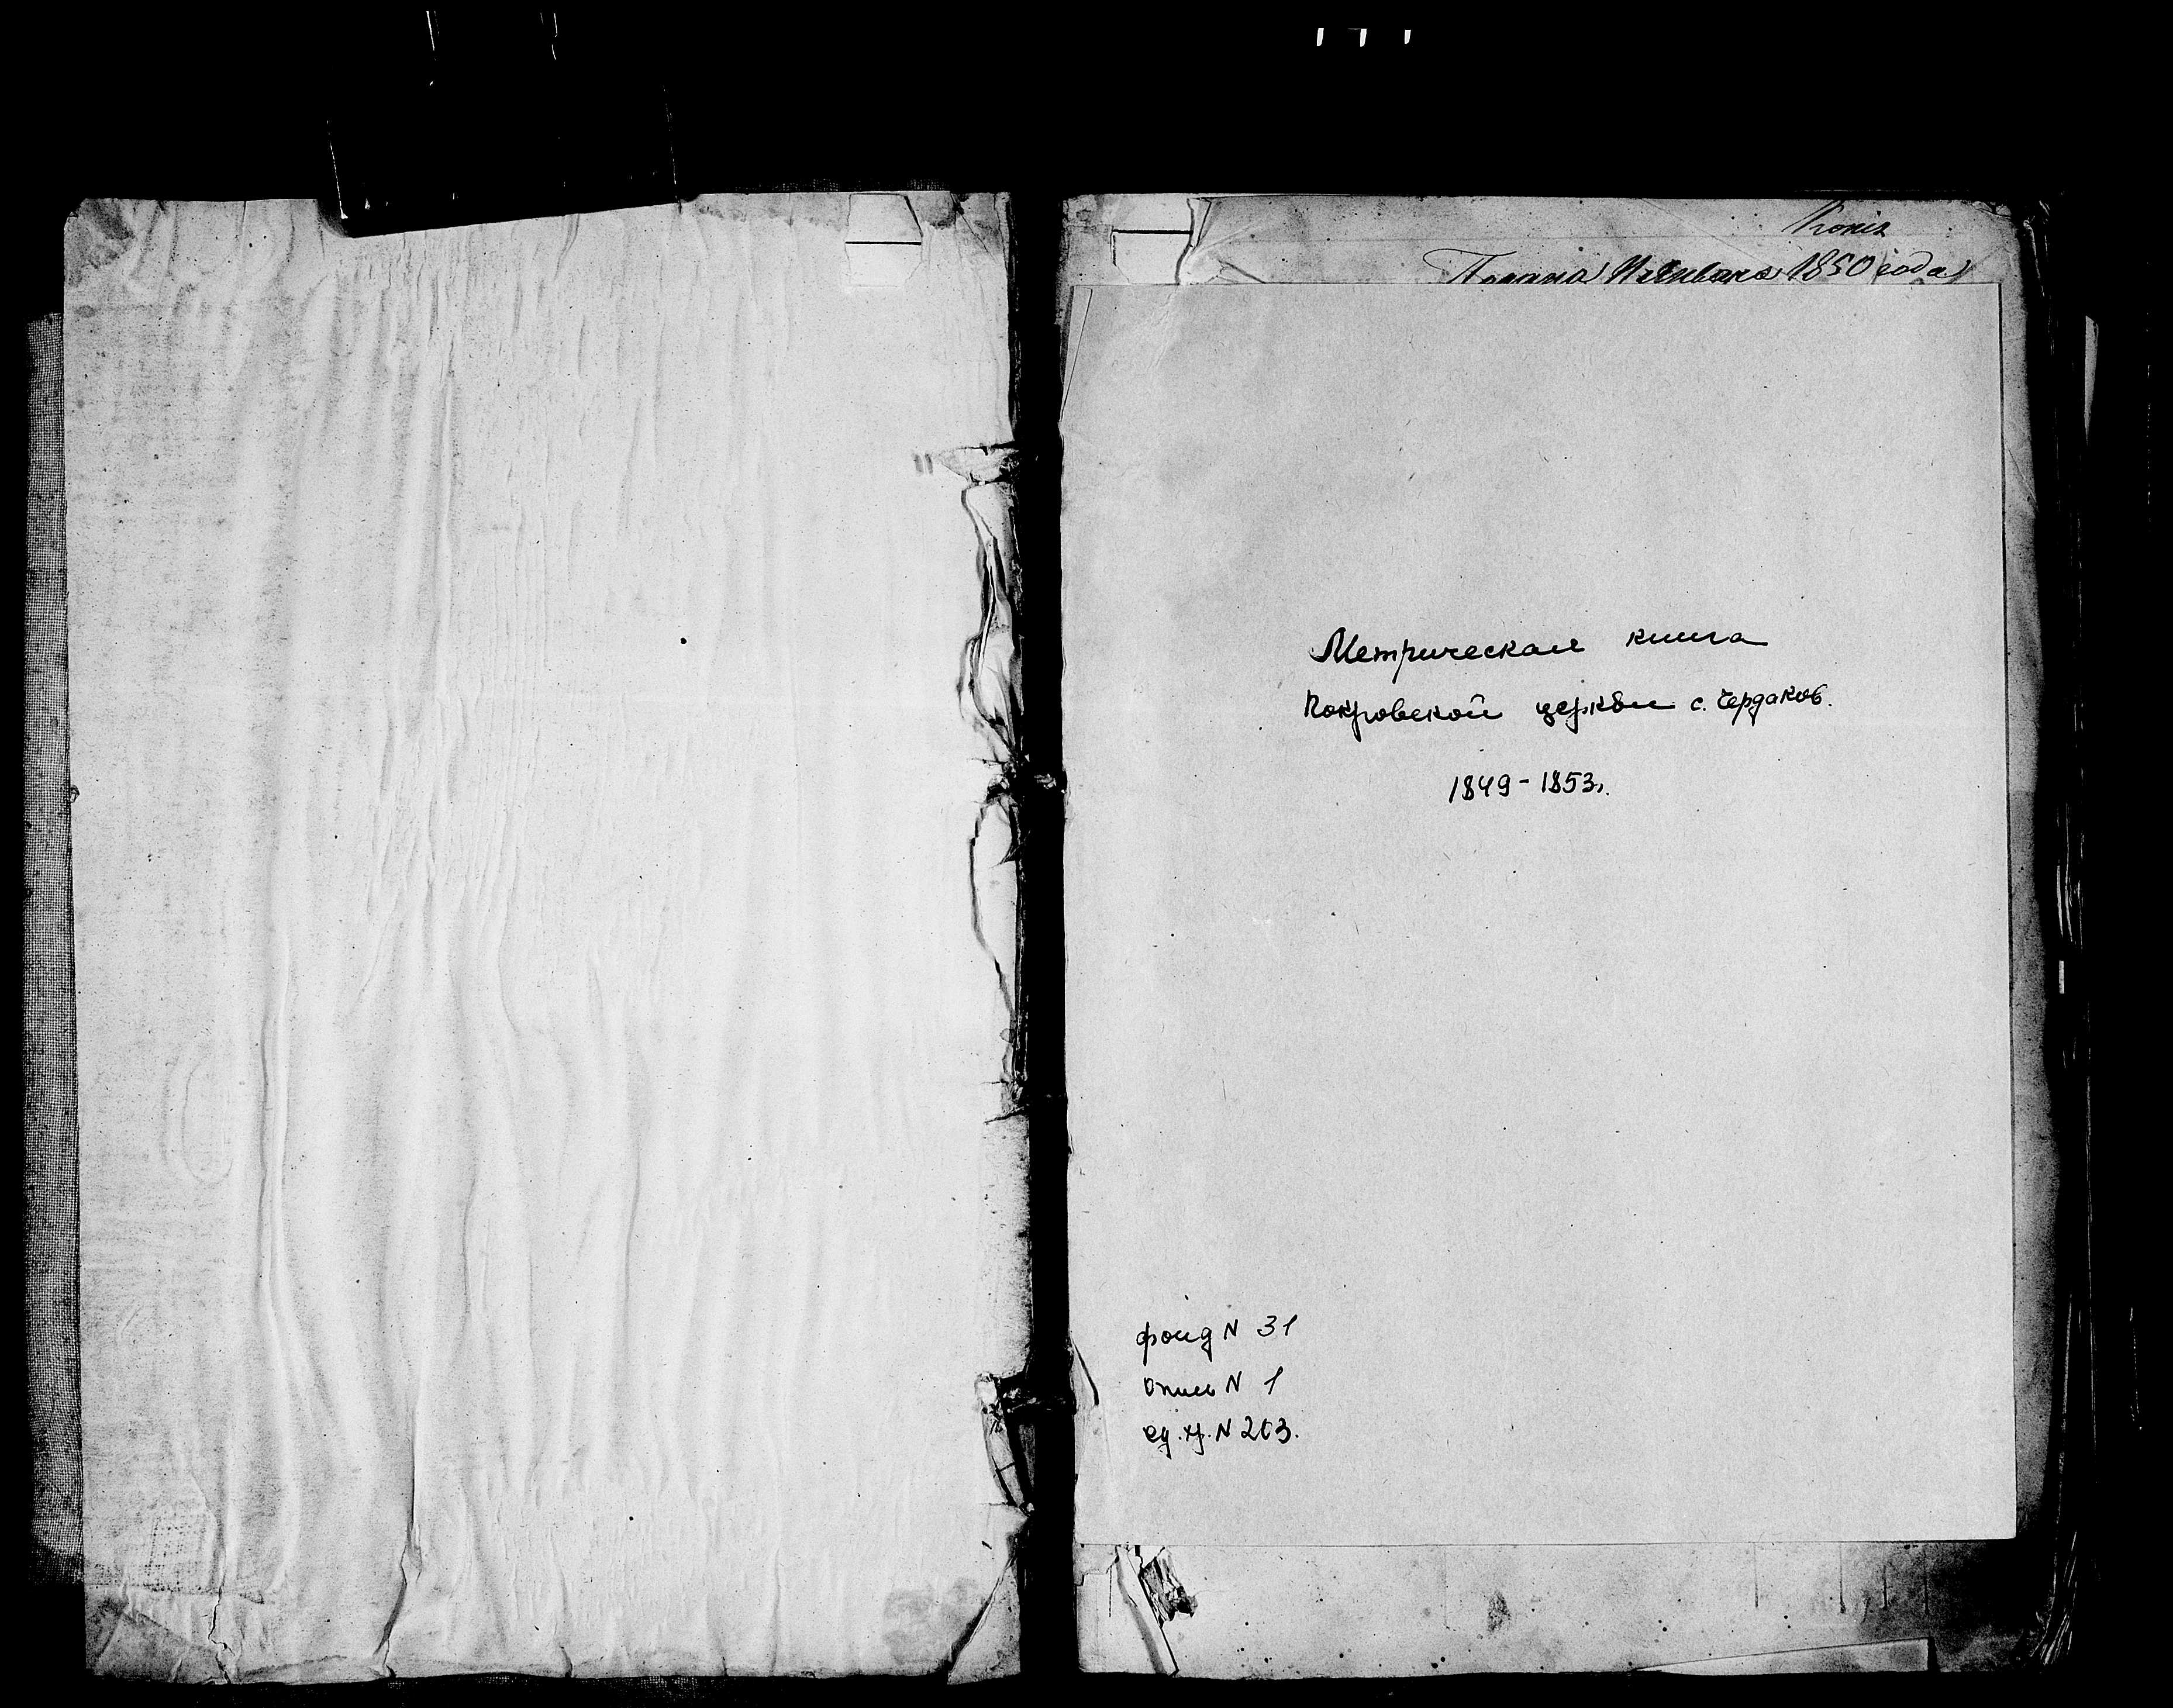 Копія
Января 1850 года
Метрическая книга
Покровской церкви с. Чердаков.
1849-1853г.
фонд N 31
опись N 1
ед. хр. N 203.